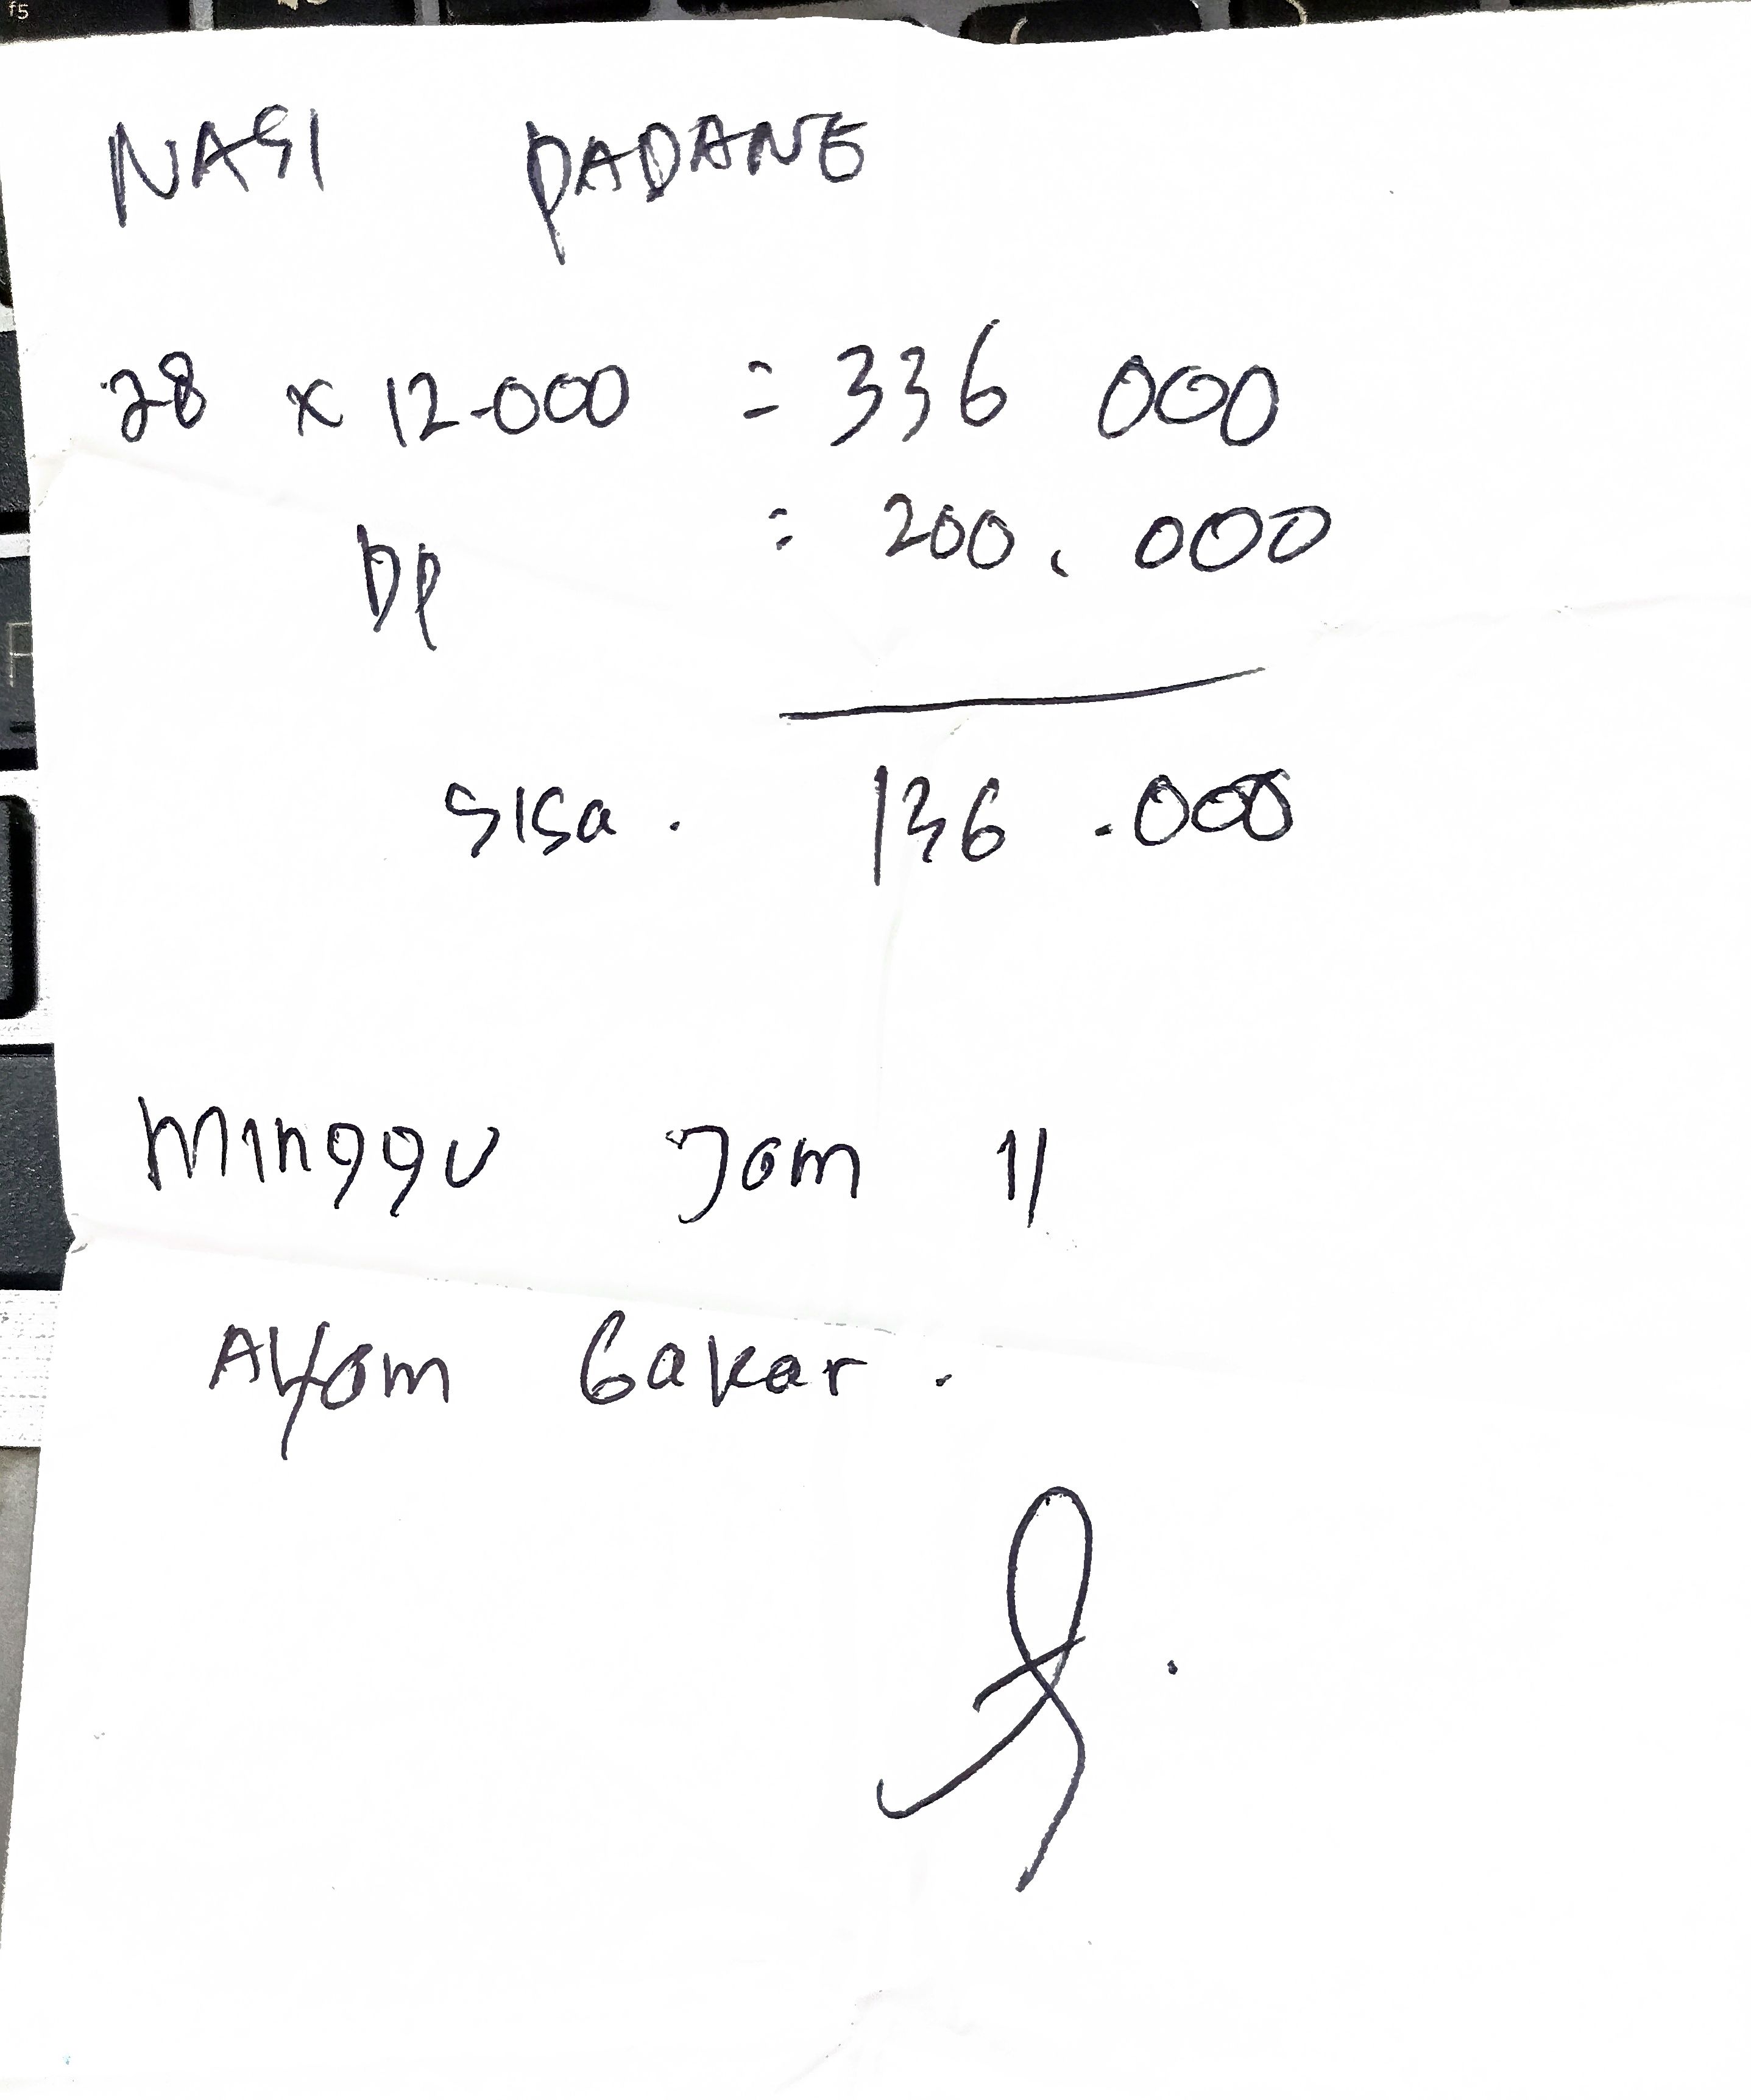 f5
NASI PADANG
28 x 12.000 = 336 000
DP = 200.000
SISA. 136.000
Minggu Jam 11
AYam bakar.